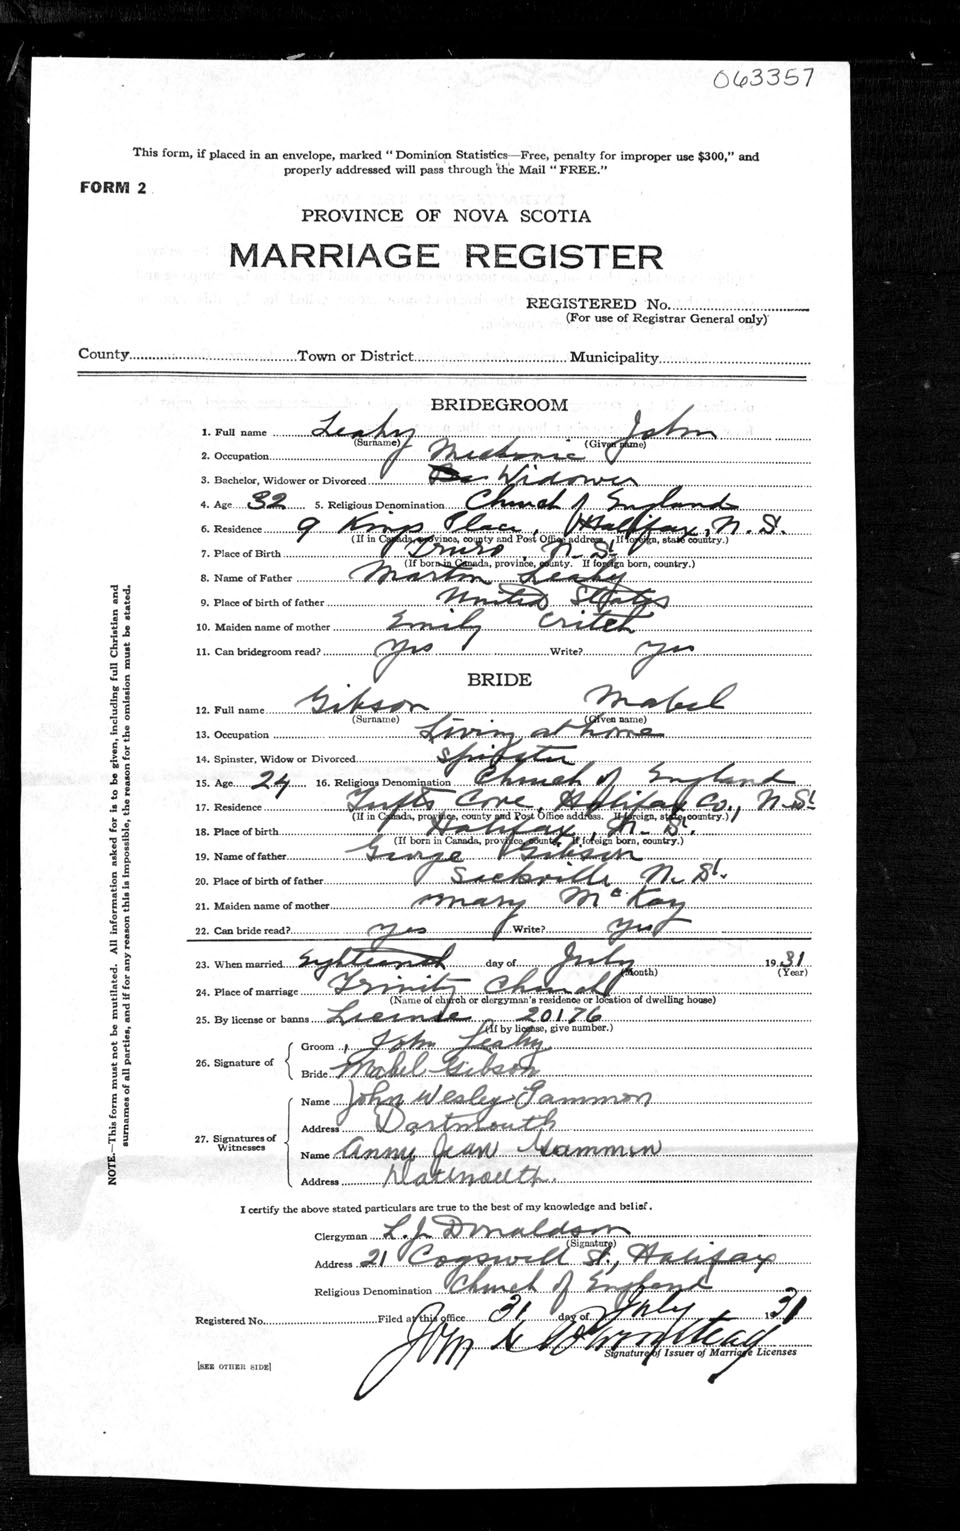 063357
This form, if placed in an envelope, marked "Dominion Statistics—Free, penalty for improper use $300," and
properly addressed will pass through the Mail "FREE."
FORM 2
PROVINCE OF NOVA SCOTIA
MARRIAGE REGISTER
REGISTERED No.
(For use of Registrar General only)
County Town or District Municipality
BRIDEGROOM
1. Full name Leahy John
(Surname) (Given name)
2. Occupation Mechanic
3. Bachelor, Widower or Divorced Widower
4. Age 32 5. Religious Denomination Church of England
6. Residence 9 Kings Place, Halifax, N.S.
(If in Canada, province, county and Post Office address. If foreign, state country.)
7. Place of Birth Truro, N.S.
(If born in Canada, province, county. If foreign born, country.)
8. Name of Father Martin Leahy
9. Place of birth of father United States
10. Maiden name of mother Emily Critch
11. Can bridegroom read? Yes Write? Yes
BRIDE
12. Full name Gibson Mabel
(Surname) (Given name)
13. Occupation Living at home
14. Spinster, Widow or Divorced Spinster
15. Age 24 16. Religious Denomination Church of England
17. Residence Tufts Cove, Halifax Co., N.S.
(If in Canada, province, county and Post Office address. If foreign, state country.)
18. Place of birth Halifax, N.S.
(If born in Canada, province, county. If foreign born, country.)
19. Name of father George Gibson
20. Place of birth of father Sackville N.S.
21. Maiden name of mother Mary McKay
22. Can bride read? Yes Write? Yes
23. When married Eighteenth day of July 1931
(Month) (Year)
24. Place of marriage Trinity Church
(Name of church or clergyman's residence or location of dwelling house)
25. By license or banns License 20176
(If by license, give number.)
26. Signature of
Groom John Leahy
Bride Mabel Gibson
27. Signatures of Witnesses
Name John Wesley Gammon
Address Dartmouth
Name Anny Jean Gammon
Address Dartmouth.
I certify the above stated particulars are true to the best of my knowledge and belief.
Clergyman L. J. Donaldson
(Signature)
Address 21 Cogswell St., Halifax
Religious Denomination Church of England
Registered No. Filed at this office 31 day of July 1931
John
Signature of Issuer of Marriage Licenses
[SEE OTHER SIDE]
NOTE.—This form must not be mutilated. All information asked for is to be given, including full Christian and
surnames of all parties, and if for any reason this is impossible, the reason for the omission must be stated.